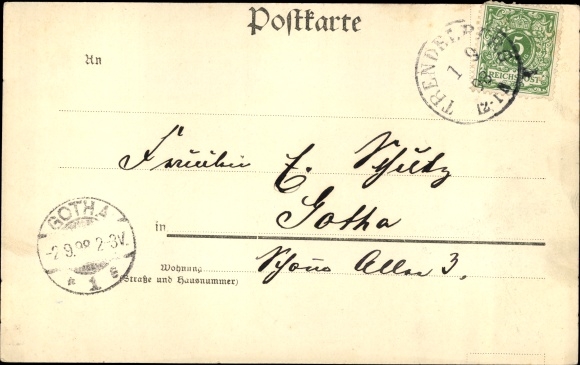 Postkarte
5
REICHSPOST
TRENDELBURG
1 9 98
12-1N
An
Fräulein E. Schultz
in Gotha
GOTHA
-2.9.98.2-3V.
* 1 *
Wohnung
(Straße und Hausnummer)
Schöne Allee 3.